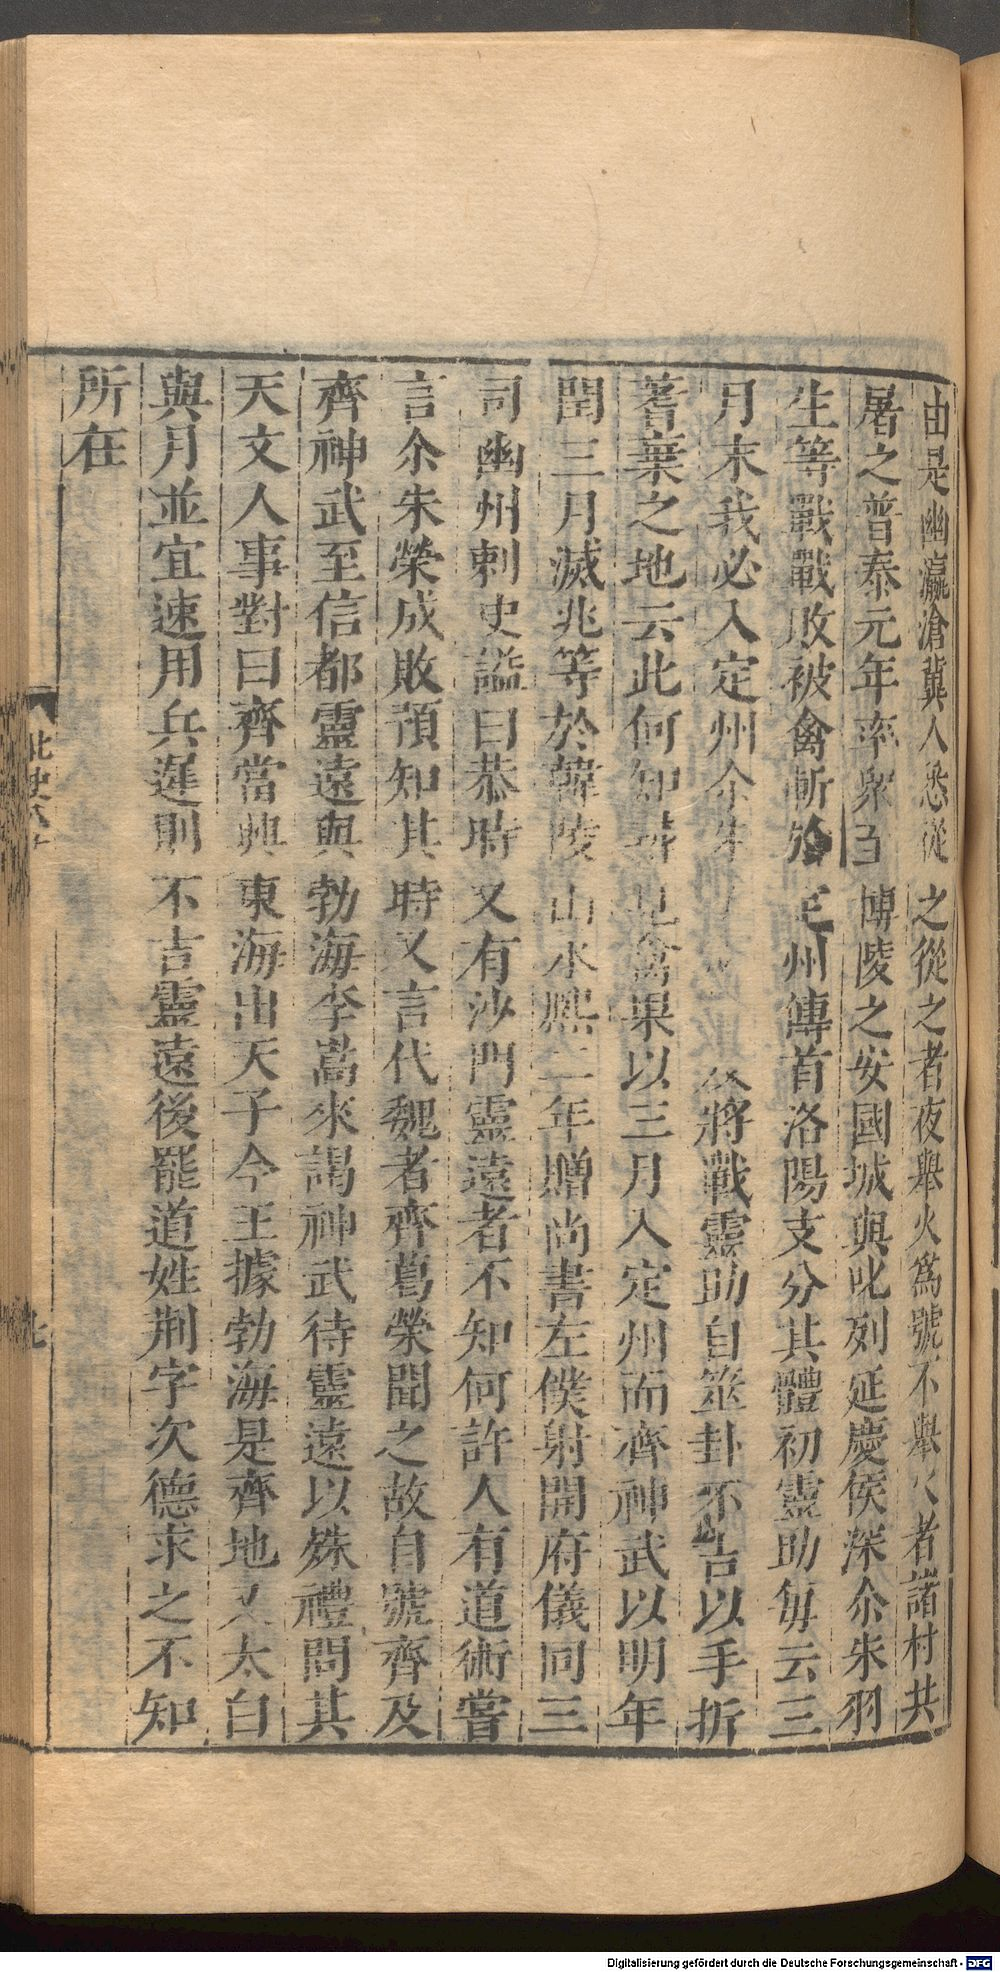 由是幽瀛滄冀人悉從之從之者夜舉火爲號不舉火者諸村共
屠之普泰元年率衆至博陵之安國城與叱列延慶侯深尒朱羽
生等戰戰敗被禽斬於定州傳首洛陽支分其體初靈助每云三
月末我必入定州尒朱將戰靈助自筮卦不吉以手折
蓍棄之地云此何知尋見禽果以三月入定州而齊神武以明年
閏三月滅兆等於韓陵山永熙二年贈尚書左僕射開府儀同三
司幽州刺史諡曰恭時又有沙門靈遠者不知何許人有道術嘗
言尒朱榮成敗預知其時又言代魏者齊葛榮聞之故自號齊及
齊神武至信都靈遠與勃海李嵩來謁神武待靈遠以殊禮問其
天文人事對曰齊當興東海出天子今王據勃海是齊地又太白
與月並宜速用兵遲則不吉靈遠後罷道姓荆字次德求之不知
所在
北史
Digitalisierung gefördert durch die Deutsche Forschungsgemeinschaft - DFG